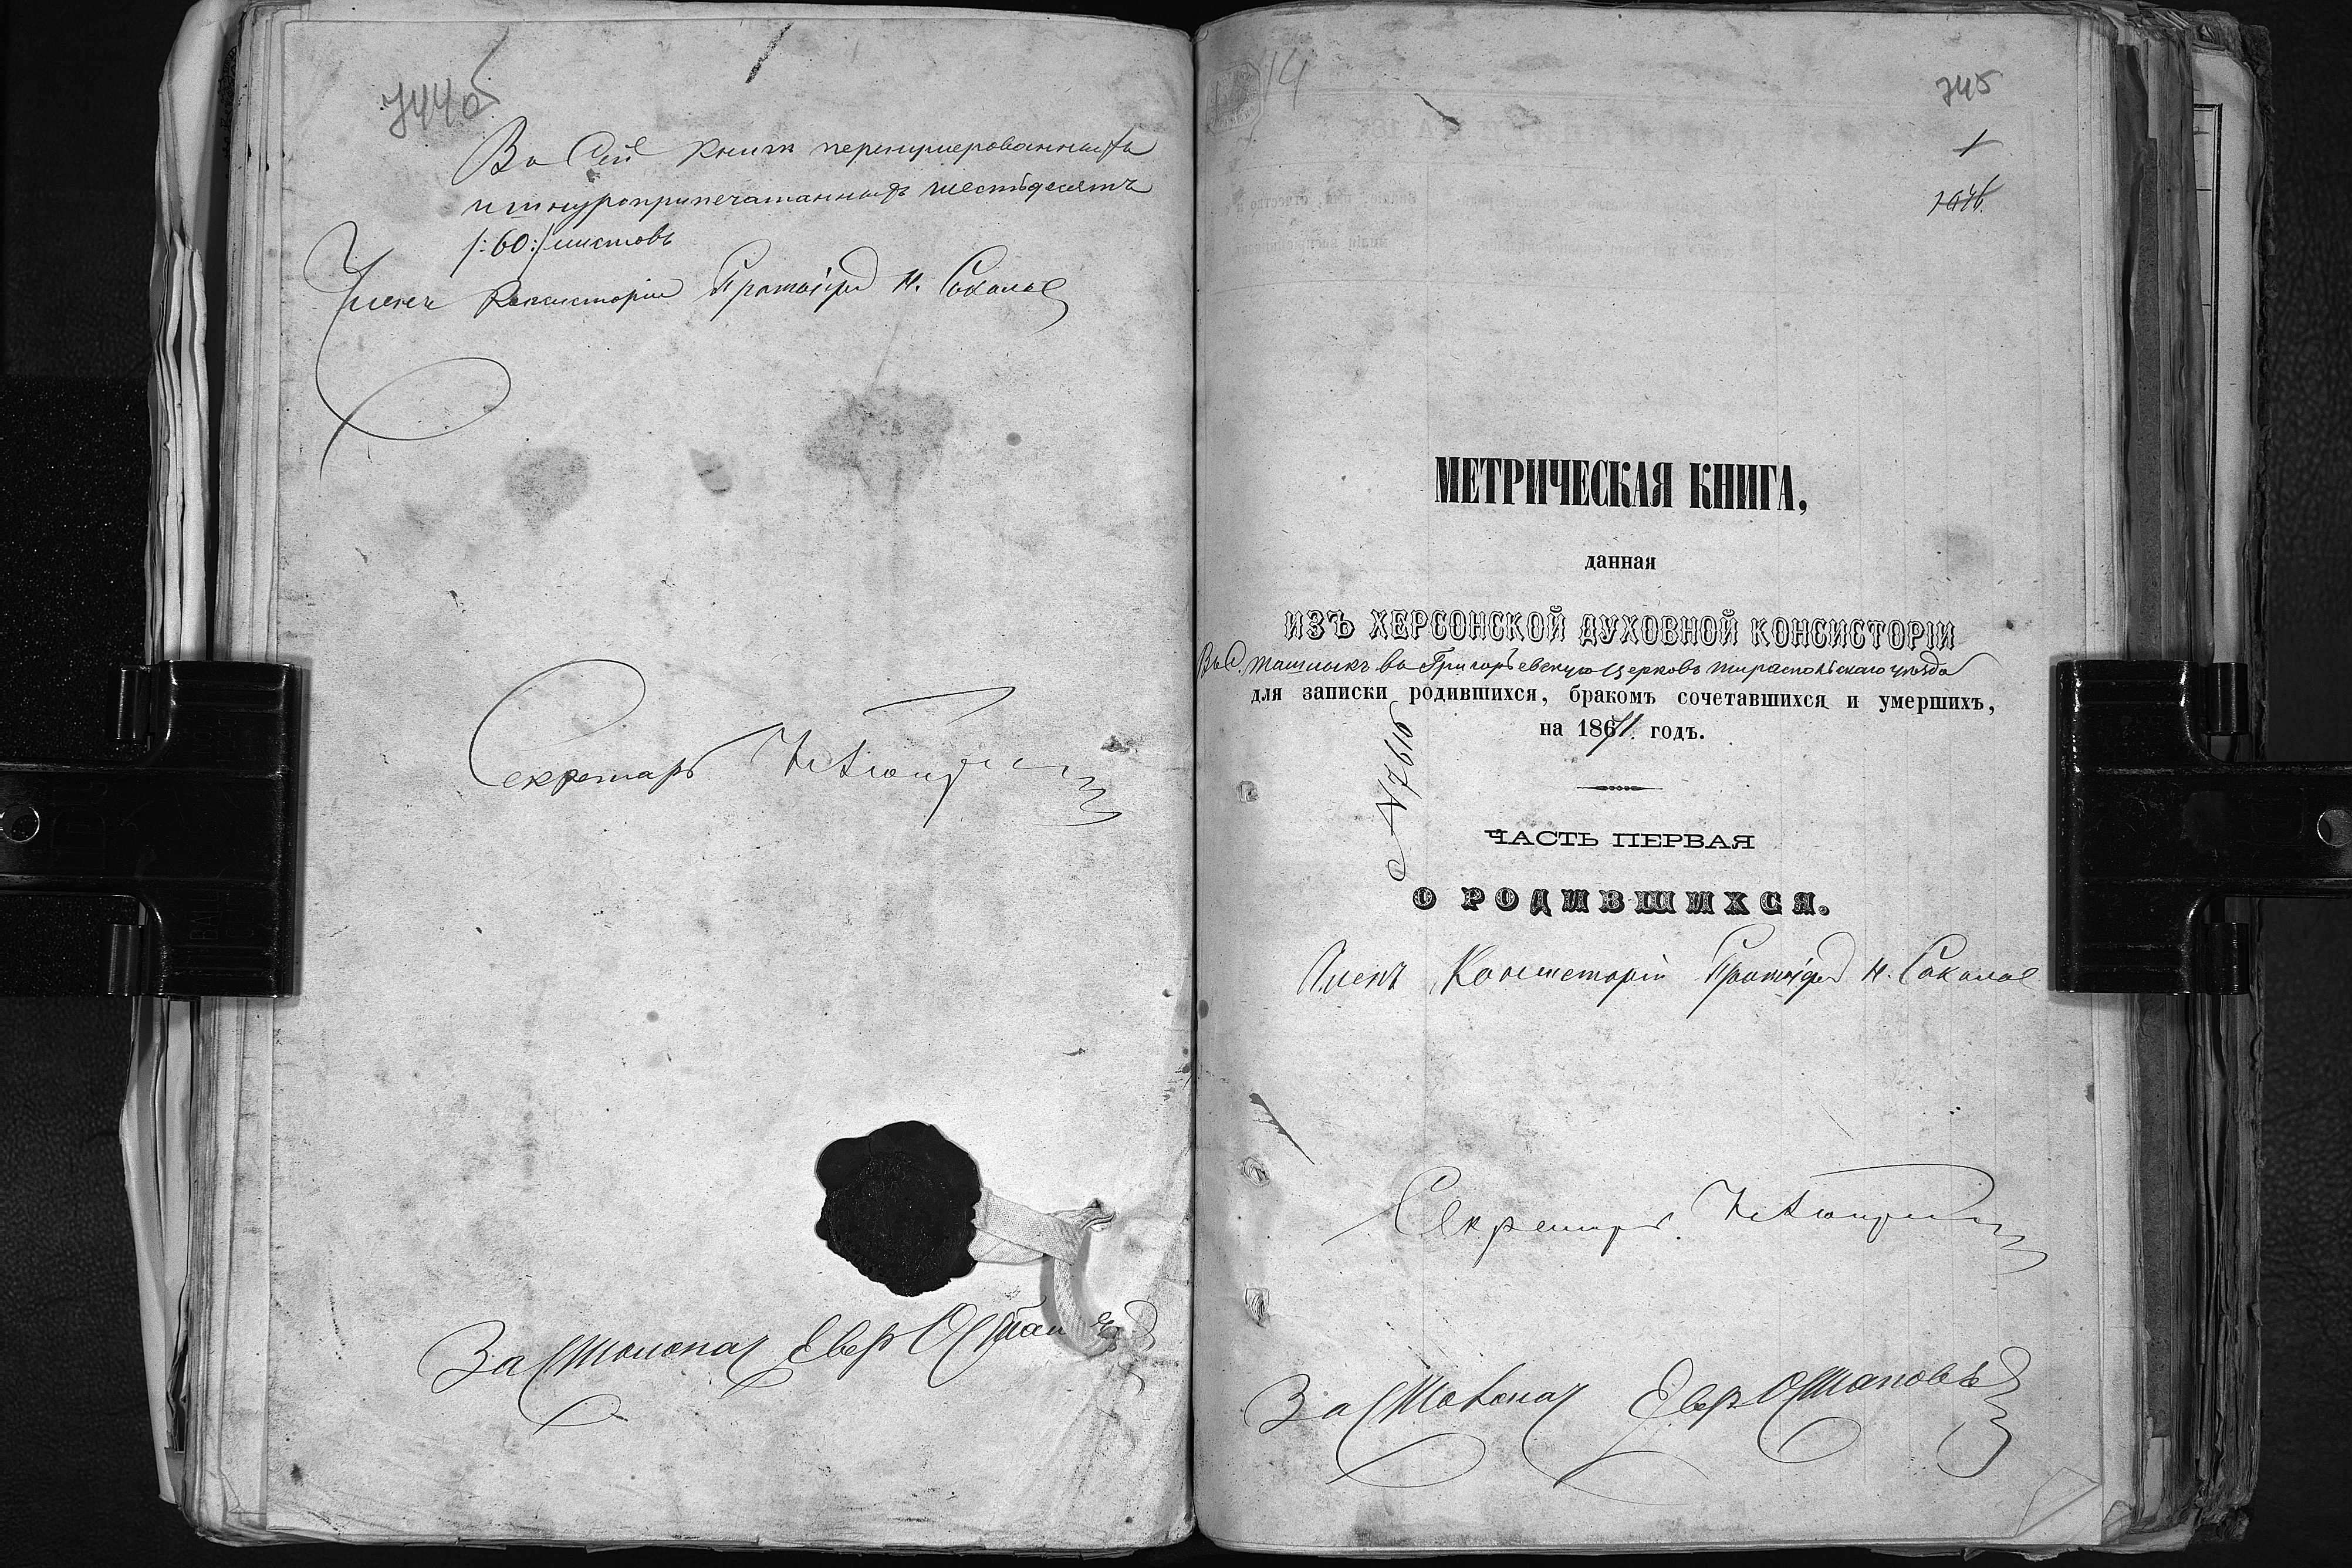 744об
Въ Сей книгѣ перенумерованныхъ
и шнуроприпечатанныхъ шестьдесятъ
/:60:/ листовъ
Членъ Консисторіи Протоіерей Н. Соколов
Секретарь
За Столонач
14
745
1
МЕТРИЧЕСКАЯ КНИГА,
данная
ИЗЪ ХЕРСОНСКОЙ ДУХОВНОЙ КОНСИСТОРІИ
Въ С. Ташлыкъ въ Григорьевскую Церковь Тираспольскаго уѣзда
для записки родившихся, бракомъ сочетавшихся и умершихъ,
на 1871 годъ.
№ 7616
ЧАСТЬ ПЕРВАЯ
О РОДИВШИХСЯ.
Членъ Консисторіи Протоіерей Н. Соколов
Секретарь
За Столонач